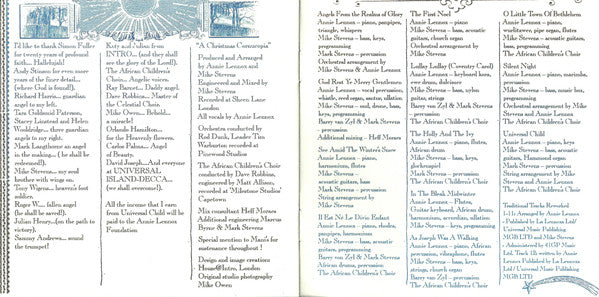 I'd like to thank Simon Fuller
for twenty years of profound
faith... Hallelujah!
Andy Stinson for even more
years of the finer detail...
(where God is found!).
Richard Harris... guardian
angel to my left.
Tara Goldsmid Paterson,
Stacey Limtered and Helen
Wooldridge... three guardian
angels to my right.
Mark Langthorne an angel
in the making... ( he shall be
redeemed!).
Mike Stevens... my soul
brother with wings on.
Tony Wigens... heaven's foot
soldier.
Roger W... fallen angel
(he shall be saved!).
Julian Henry...(on the path to
victory).
Sammy Andrews... sound
the trumpet!
Katy and Julian from
INTRO... (and they shall
see the glory of the Lord!).
The African Children's
Choir... Angelic voices.
Ray Barnet... Daddy angel.
Dave Robbins... Master of
the Celestial Choir.
Mike Owen... Behold...
a miracle!
Orlando Hamilton...
for the Heavenly flowers.
Carlos Palma... Angel
of Beauty.
David Joseph...And everyone
at UNIVERSAL
ISLAND-DECCA...
(we shall overcome!).
All the income that I earn
from Universal Child will be
paid to the Annie Lennox
Foundation
"A Christmas Cornucopia"
Produced and Arranged
by Annie Lennox and
Mike Stevens
Engineered and Mixed by
Mike Stevens
Recorded at Sheen Lane
London
All vocals by Annie Lennox
Orchestra conducted by
Rod Dunk, Leader Tim
Warburton recorded at
Pinewood Studios
The African Children's Choir
conducted by Dave Robbins,
engineered by Matt Allison,
recorded at 'Milestone Studios'
Capetown
Mix consultant Heff Moraes
Additional engineering Marcus
Byrne & Mark Stevens
Special mention to Manis for
sustenance throughout !
Design and image creations
House@Intro, London
Original studio photography
Mike Owen
Angels From the Realms of Glory
Annie Lennox – piano, panpipes,
triangle, whispers
Mike Stevens – bass, keys,
programming
Mark Stevens – percussion
Orchestral arrangement by
Mike Stevens & Annie Lennox
God Rest Ye Merry Gentlemen
Annie Lennox – vocal percussion,
whistle, reed organ, santur, dilation
Mike Stevens – snd, drone, bass,
keys, programming
Barry van Zyl & Mark Stevens
– percussion
Additional mixing – Heff Moraes
See Amid The Winter's Snow
Annie Lennox – piano,
harmonium, flutes
Mike Stevens – bass, acoustic
guitars, keys
Mark Stevens – percussion
String arrangement by
Mike Stevens
Il Est Né Le Divin Enfant
Annie Lennox – piano, rhodes,
panpipes, harmoniums
Mike Stevens – bass, acoustic
guitars, programming
Barry van Zyl & Mark Stevens
African drums, percussion
The African Children's Choir
The First Noel
Annie Lennox – piano
Mike Stevens – bass, acoustic
guitars, church organ
Orchestral arrangement by
Mike Stevens
Lullay Lullay (Coventry Carol)
Annie Lennox – keyboard kora,
ewe drum, dulcimer
Mike Stevens – bass, nylon
guitar, strings
Barry van Zyl & Mark Stevens
– percussion
The African Children's Choir
The Holly And The Ivy
Annie Lennox – piano, flutes,
African drum
Mike Stevens – bass, keys,
glockenspiel
Mark Stevens – percussion
The African Children's Choir
In The Bleak Midwinter
Annie Lennox – Flutes,
Guitar keyboard, African drum,
harmonium, accordian, ullation
Mike Stevens – keys,
programming
As Joseph Was A Walking
Annie Lennox – piano, African
percussion, vibraphone, flutes
Mike Stevens – bass, keys,
strings, church organ
Barry van Zyl – percussion
The African Children's Choir
O Little Town Of Bethlehem
Annie Lennox – piano,
wurlitzer, pipe organ, flutes
Mike Stevens – acoustic guitars,
bass, keys, programming
The African Children's Choir
Silent Night
Annie Lennox – piano, marimba,
percussion
Mike Stevens – bass, music box,
programming
Orchestral arrangement by Mike
Stevens and Annie Lennox
The African Children's Choir
Universal Child
Annie Lennox – piano, keys
Mike Stevens – bass, acoustic
guitars, Hammond organ
Mark Stevens – percussion
String arrangement by
Mike Stevens
The African Children's Choir
Traditional Tracks Reworked
1-11: Arranged by Annie Lennox
- Published by La Lennoxa Ltd/
Universal Music Publishing
MGB LTD and Mike Stevens
- Administered by
Ltd. Track 12: written by Annie
Lennox Published by La Lennoxa
Ltd/ Universal Music Publishing
MGB LTD